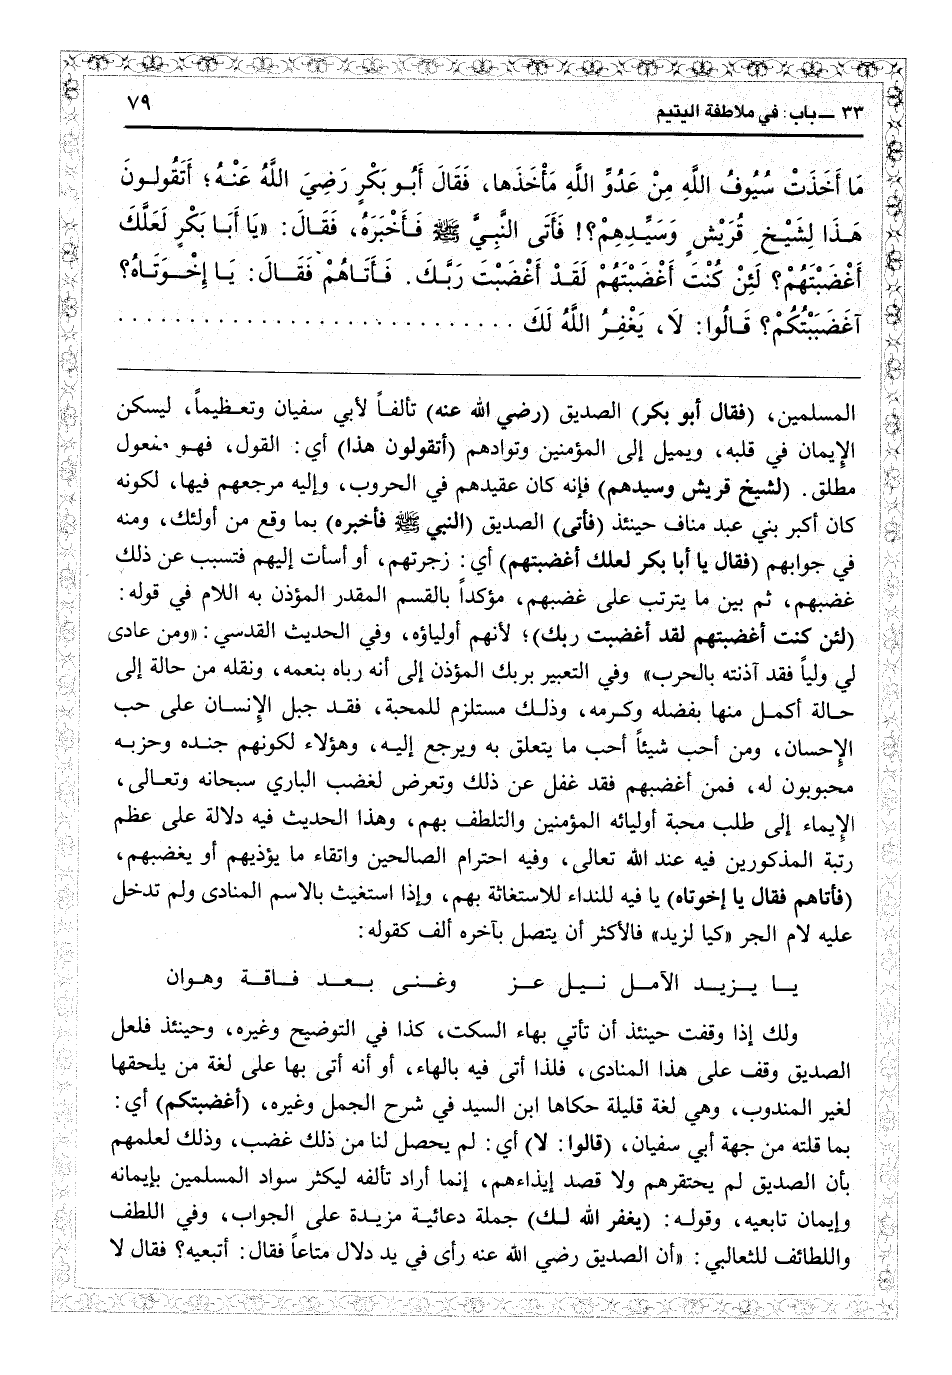 ٣٣ ــ باب: في ملاطفة اليتيم
٧٩
مَا أَخَذَتْ سُيُوفُ اللَّهِ مِنْ عَدُوِّ اللَّهِ مَأْخَذَها، فَقَالَ أَبُو بَكْرٍ رَضِيَ اللَّهُ عَنْهُ؛ أَتَقُولُونَ
هَذَا لِشَيْخِ قُرَيْشٍ وَسَيِّدِهِمْ؟! فَأَتَى النَّبِيَّ ﷺ فَأَخْبَرَهُ، فَقَالَ: «يَا أَبَا بَكْرٍ لَعَلَّكَ
أَغْضَبْتَهُمْ؟ لَئِنْ كُنْتَ أَغْضَبْتَهُمْ لَقَدْ أَغْضَبْتَ رَبَّكَ. فَأَتَاهُمْ فَقَالَ: يَا إِخْوَتَاهُ؟
آغَضَبْتُكُمْ؟ قَالُوا: لَا، يَغْفِرُ اللَّهُ لَكَ . . . . . . . . . . . . . . . . . . . . . . . . . . .
المسلمين، (فقال أبو بكر) الصديق (رضي الله عنه) تألفاً لأبي سفيان وتعظيماً، ليسكن
الإيمان في قلبه، ويميل إلى المؤمنين وتوادهم (أتقولون هذا) أي: القول، فهو مفعول
مطلق. (لشيخ قريش وسيدهم) فإنه كان عقيدهم في الحروب، وإليه مرجعهم فيها، لكونه
كان أكبر بني عبد مناف حينئذ (فأتى) الصديق (النبي ﷺ فأخبره) بما وقع من أولئك، ومنه
في جوابهم (فقال يا أبا بكر لعلك أغضبتهم) أي: زجرتهم، أو أسأت إليهم فتسبب عن ذلك
غضبهم، ثم بين ما يترتب على غضبهم، مؤكداً بالقسم المقدر المؤذن به اللام في قوله:
(لئن كنت أغضبتهم لقد أغضبت ربك)؛ لأنهم أولياؤه، وفي الحديث القدسي: «ومن عادى
لي ولياً فقد آذنته بالحرب» وفي التعبير بربك المؤذن إلى أنه رباه بنعمه، ونقله من حالة إلى
حالة أكمل منها بفضله وكرمه، وذلك مستلزم للمحبة، فقد جبل الإنسان على حب
الإحسان، ومن أحب شيئاً أحب ما يتعلق به ويرجع إليه، وهؤلاء لكونهم جنده وحزبه
محبوبون له، فمن أغضبهم فقد غفل عن ذلك وتعرض لغضب الباري سبحانه وتعالى،
الإيماء إلى طلب محبة أوليائه المؤمنين والتلطف بهم، وهذا الحديث فيه دلالة على عظم
رتبة المذكورين فيه عند الله تعالى، وفيه احترام الصالحين واتقاء ما يؤذيهم أو يغضبهم،
(فأتاهم فقال يا إخوتاه) يا فيه للنداء للاستغاثة بهم، وإذا استغيث بالاسم المنادى ولم تدخل
عليه لام الجر «كيا لزيد» فالأكثر أن يتصل بآخره ألف كقوله:
يا يزيد الآمل نيل عز وغنى بعد فاقة وهوان
ولك إذا وقفت حينئذ أن تأتي بهاء السكت، كذا في التوضيح وغيره، وحينئذ فلعل
الصديق وقف على هذا المنادى، فلذا أتى فيه بالهاء، أو أنه أتى بها على لغة من يلحقها
لغير المندوب، وهي لغة قليلة حكاها ابن السيد في شرح الجمل وغيره، (أغضبتكم) أي:
بما قلته من جهة أبي سفيان، (قالوا: لا) أي: لم يحصل لنا من ذلك غضب، وذلك لعلمهم
بأن الصديق لم يحتقرهم ولا قصد إيذاءهم، إنما أراد تألفه ليكثر سواد المسلمين بإيمانه
وإيمان تابعيه، وقوله: (يغفر الله لك) جملة دعائية مزيدة على الجواب، وفي اللطف
واللطائف للثعالبي: «أن الصديق رضي الله عنه رأى في يد دلال متاعاً فقال: أتبعيه؟ فقال لا